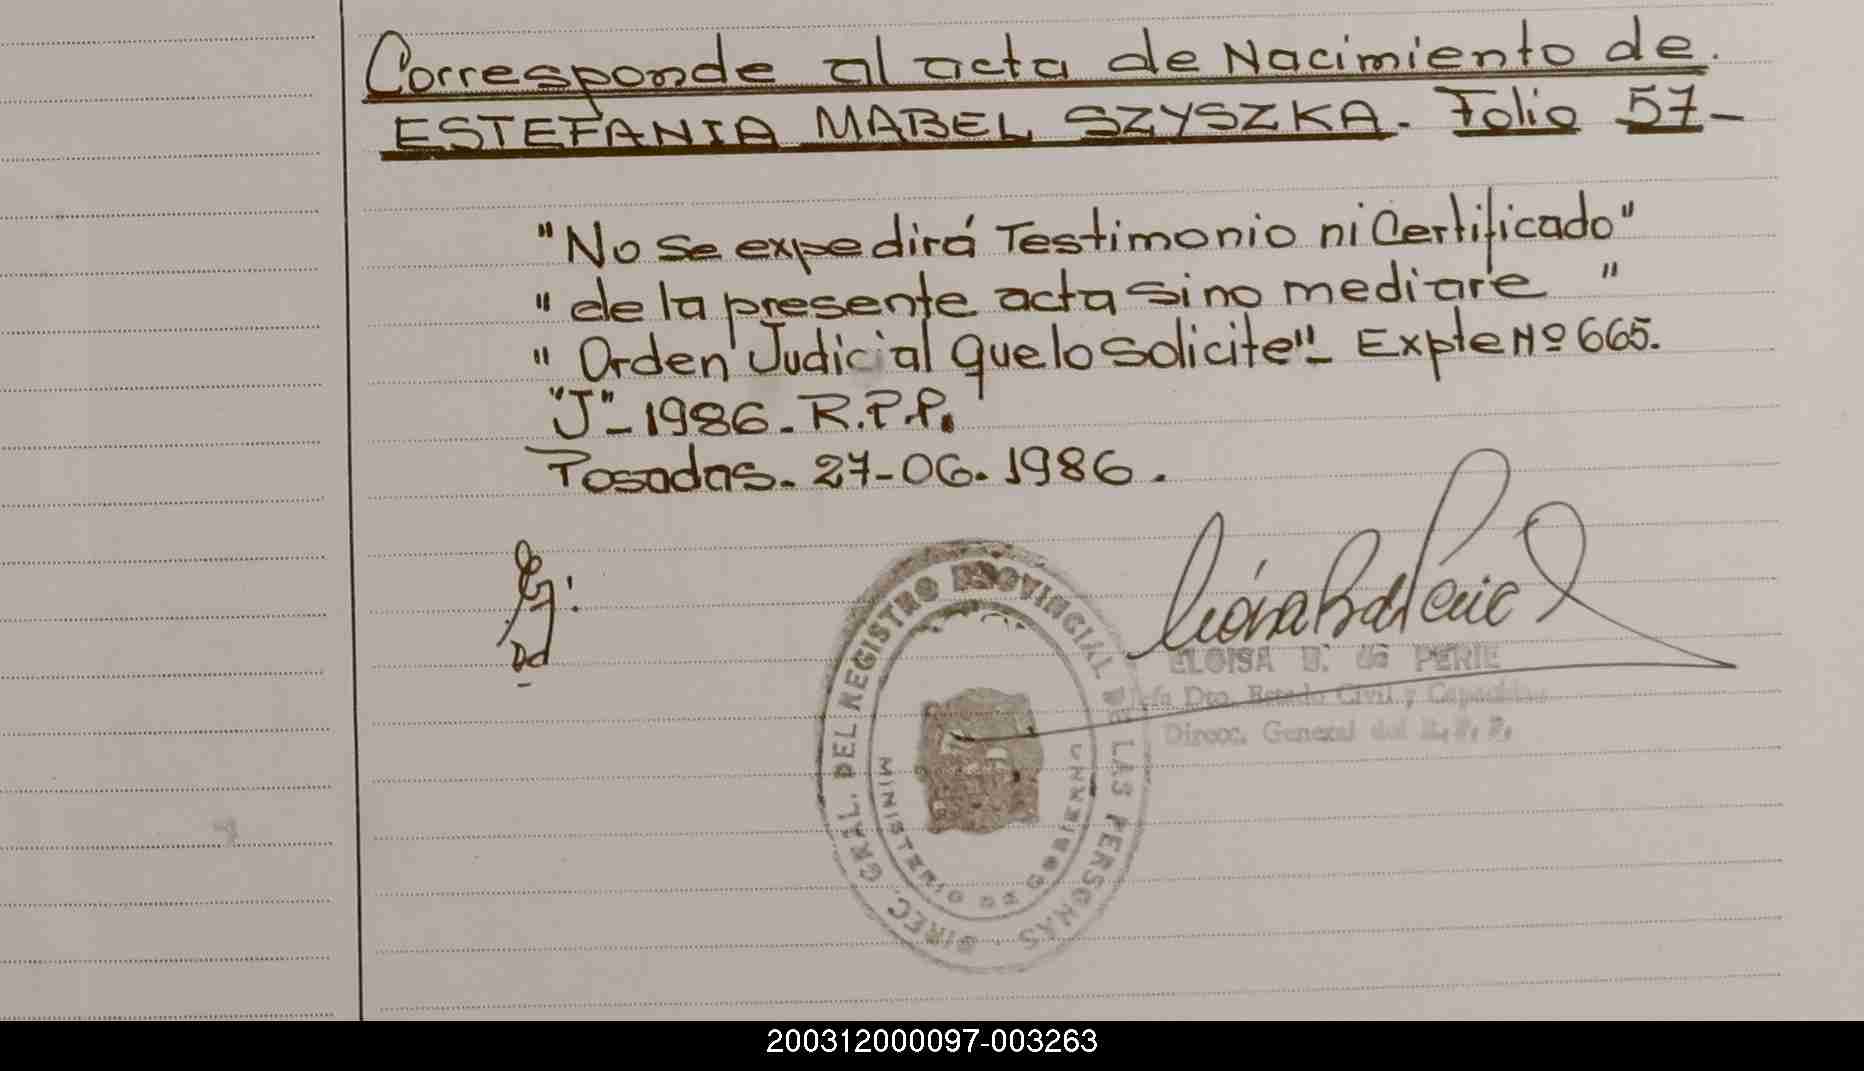 Corresponde al acta de Nacimiento de.
ESTEFANIA MABEL SZYSZKA. Folio 57-
"No se expedirá Testimonio ni Certificado"
" de la presente acta si no mediare "
" Orden Judicial que lo solicite"- Expte Nº 665.
"J"-1986-R.P.P.
Posadas. 27-06-1986.
ELOISA B. de PERIE
Jefa Dto. Estado Civil y Capacidad
Direcc. General del R.P.P.
DIREC. GRAL. DEL REGISTRO PROVINCIAL DE LAS PERSONAS
MINISTERIO DE GOBIERNO
200312000097-003263